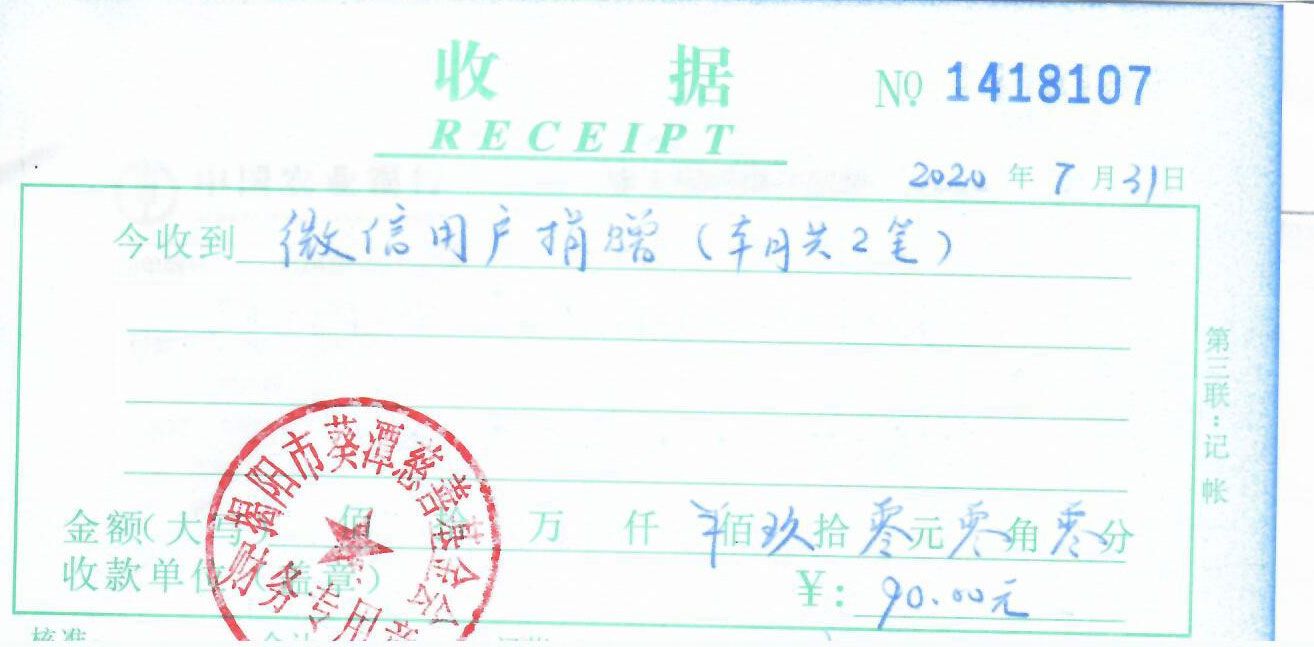 收据
№ 1418107
RECEIPT
2020 年 7 月 31 日
今收到 微信用户捐赠（本月共2笔）
第三联：记帐
金额（大写） 佰 拾 万 仟 佰 玖 拾 零 元 零 角 零 分
收款单位（盖章） ¥： 90.00元
揭阳市葵潭慈善基金会
财务专用章
核准